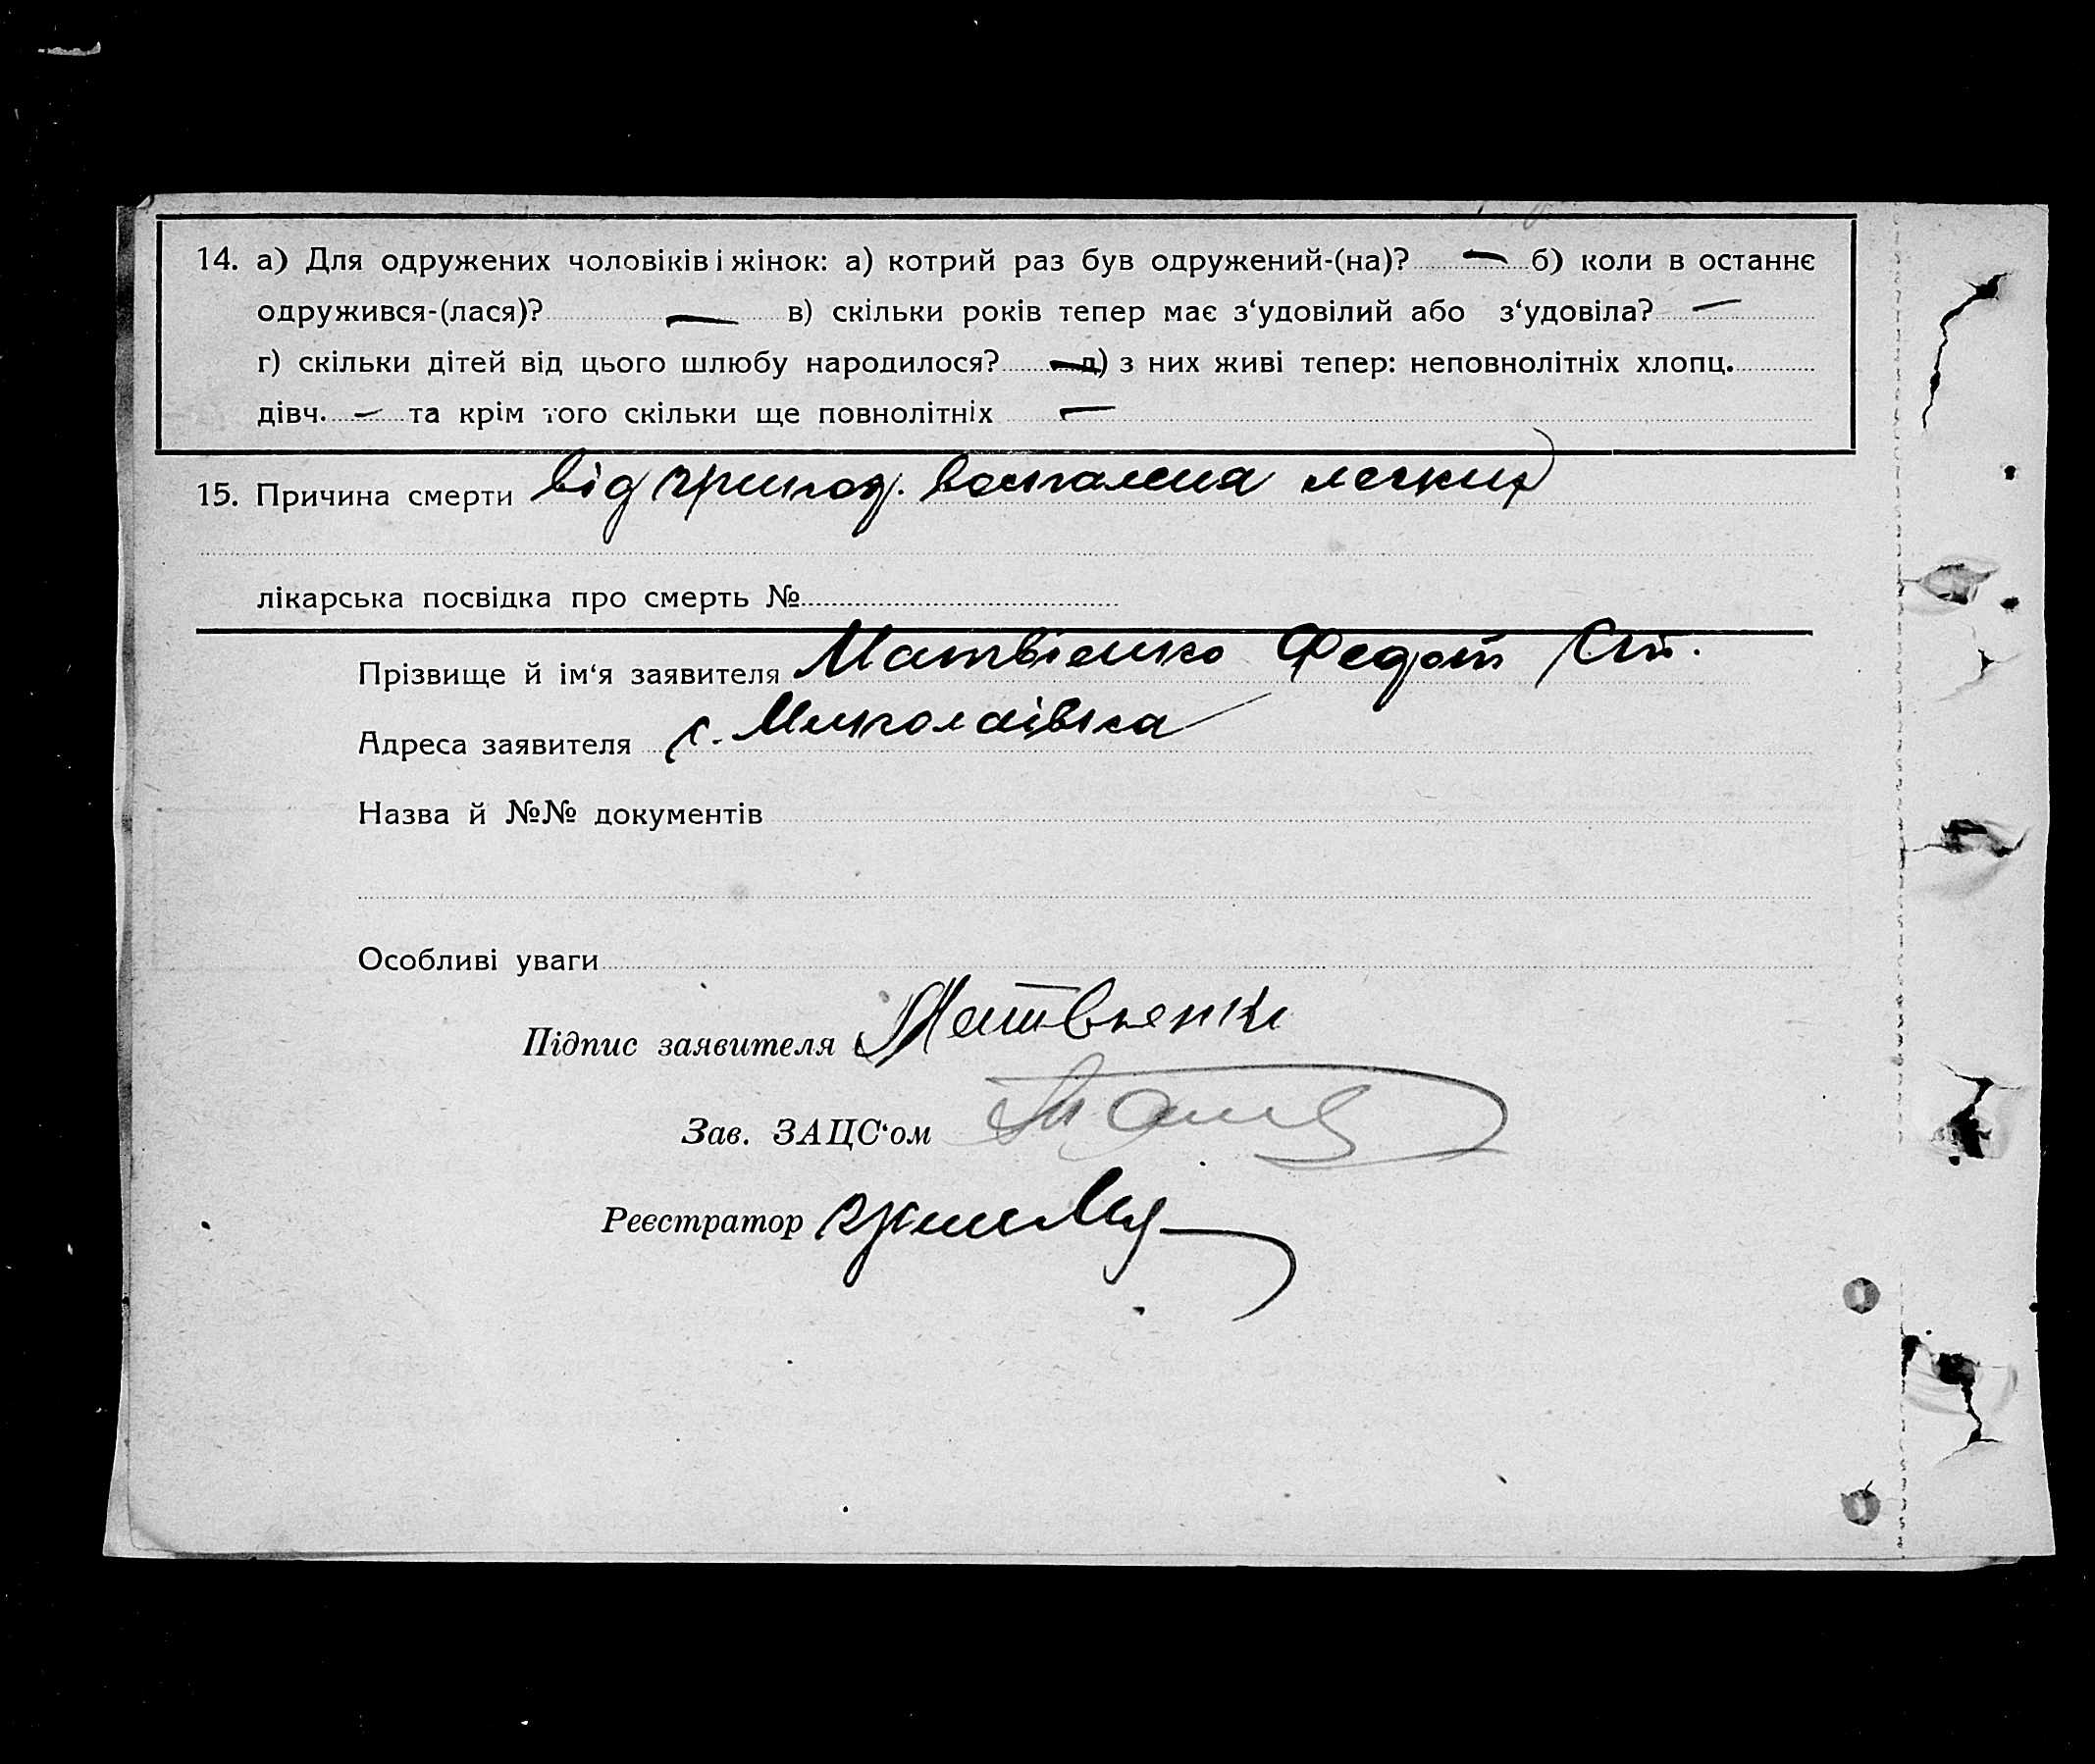 14. а) Для одружених чоловіків і жінок: а) котрий раз був одружений-(на)? — б) коли в останнє
одружився-(лася)? — в) скільки років тепер має з‘удовілий або з‘удовіла? —
г) скільки дітей від цього шлюбу народилося? — д) з них живі тепер: неповнолітніх хлопц.
дівч. — та крім того скільки ще повнолітніх —
15. Причина смерти від воспаления легких
лікарська посвідка про смерть №
Прізвище й ім‘я заявителя Матвієнко Федот
Адреса заявителя с. Миколаївка
Назва й №№ документів
Особливі уваги
Підпис заявителя
Зав. ЗАЦС‘ом
Реєстратор